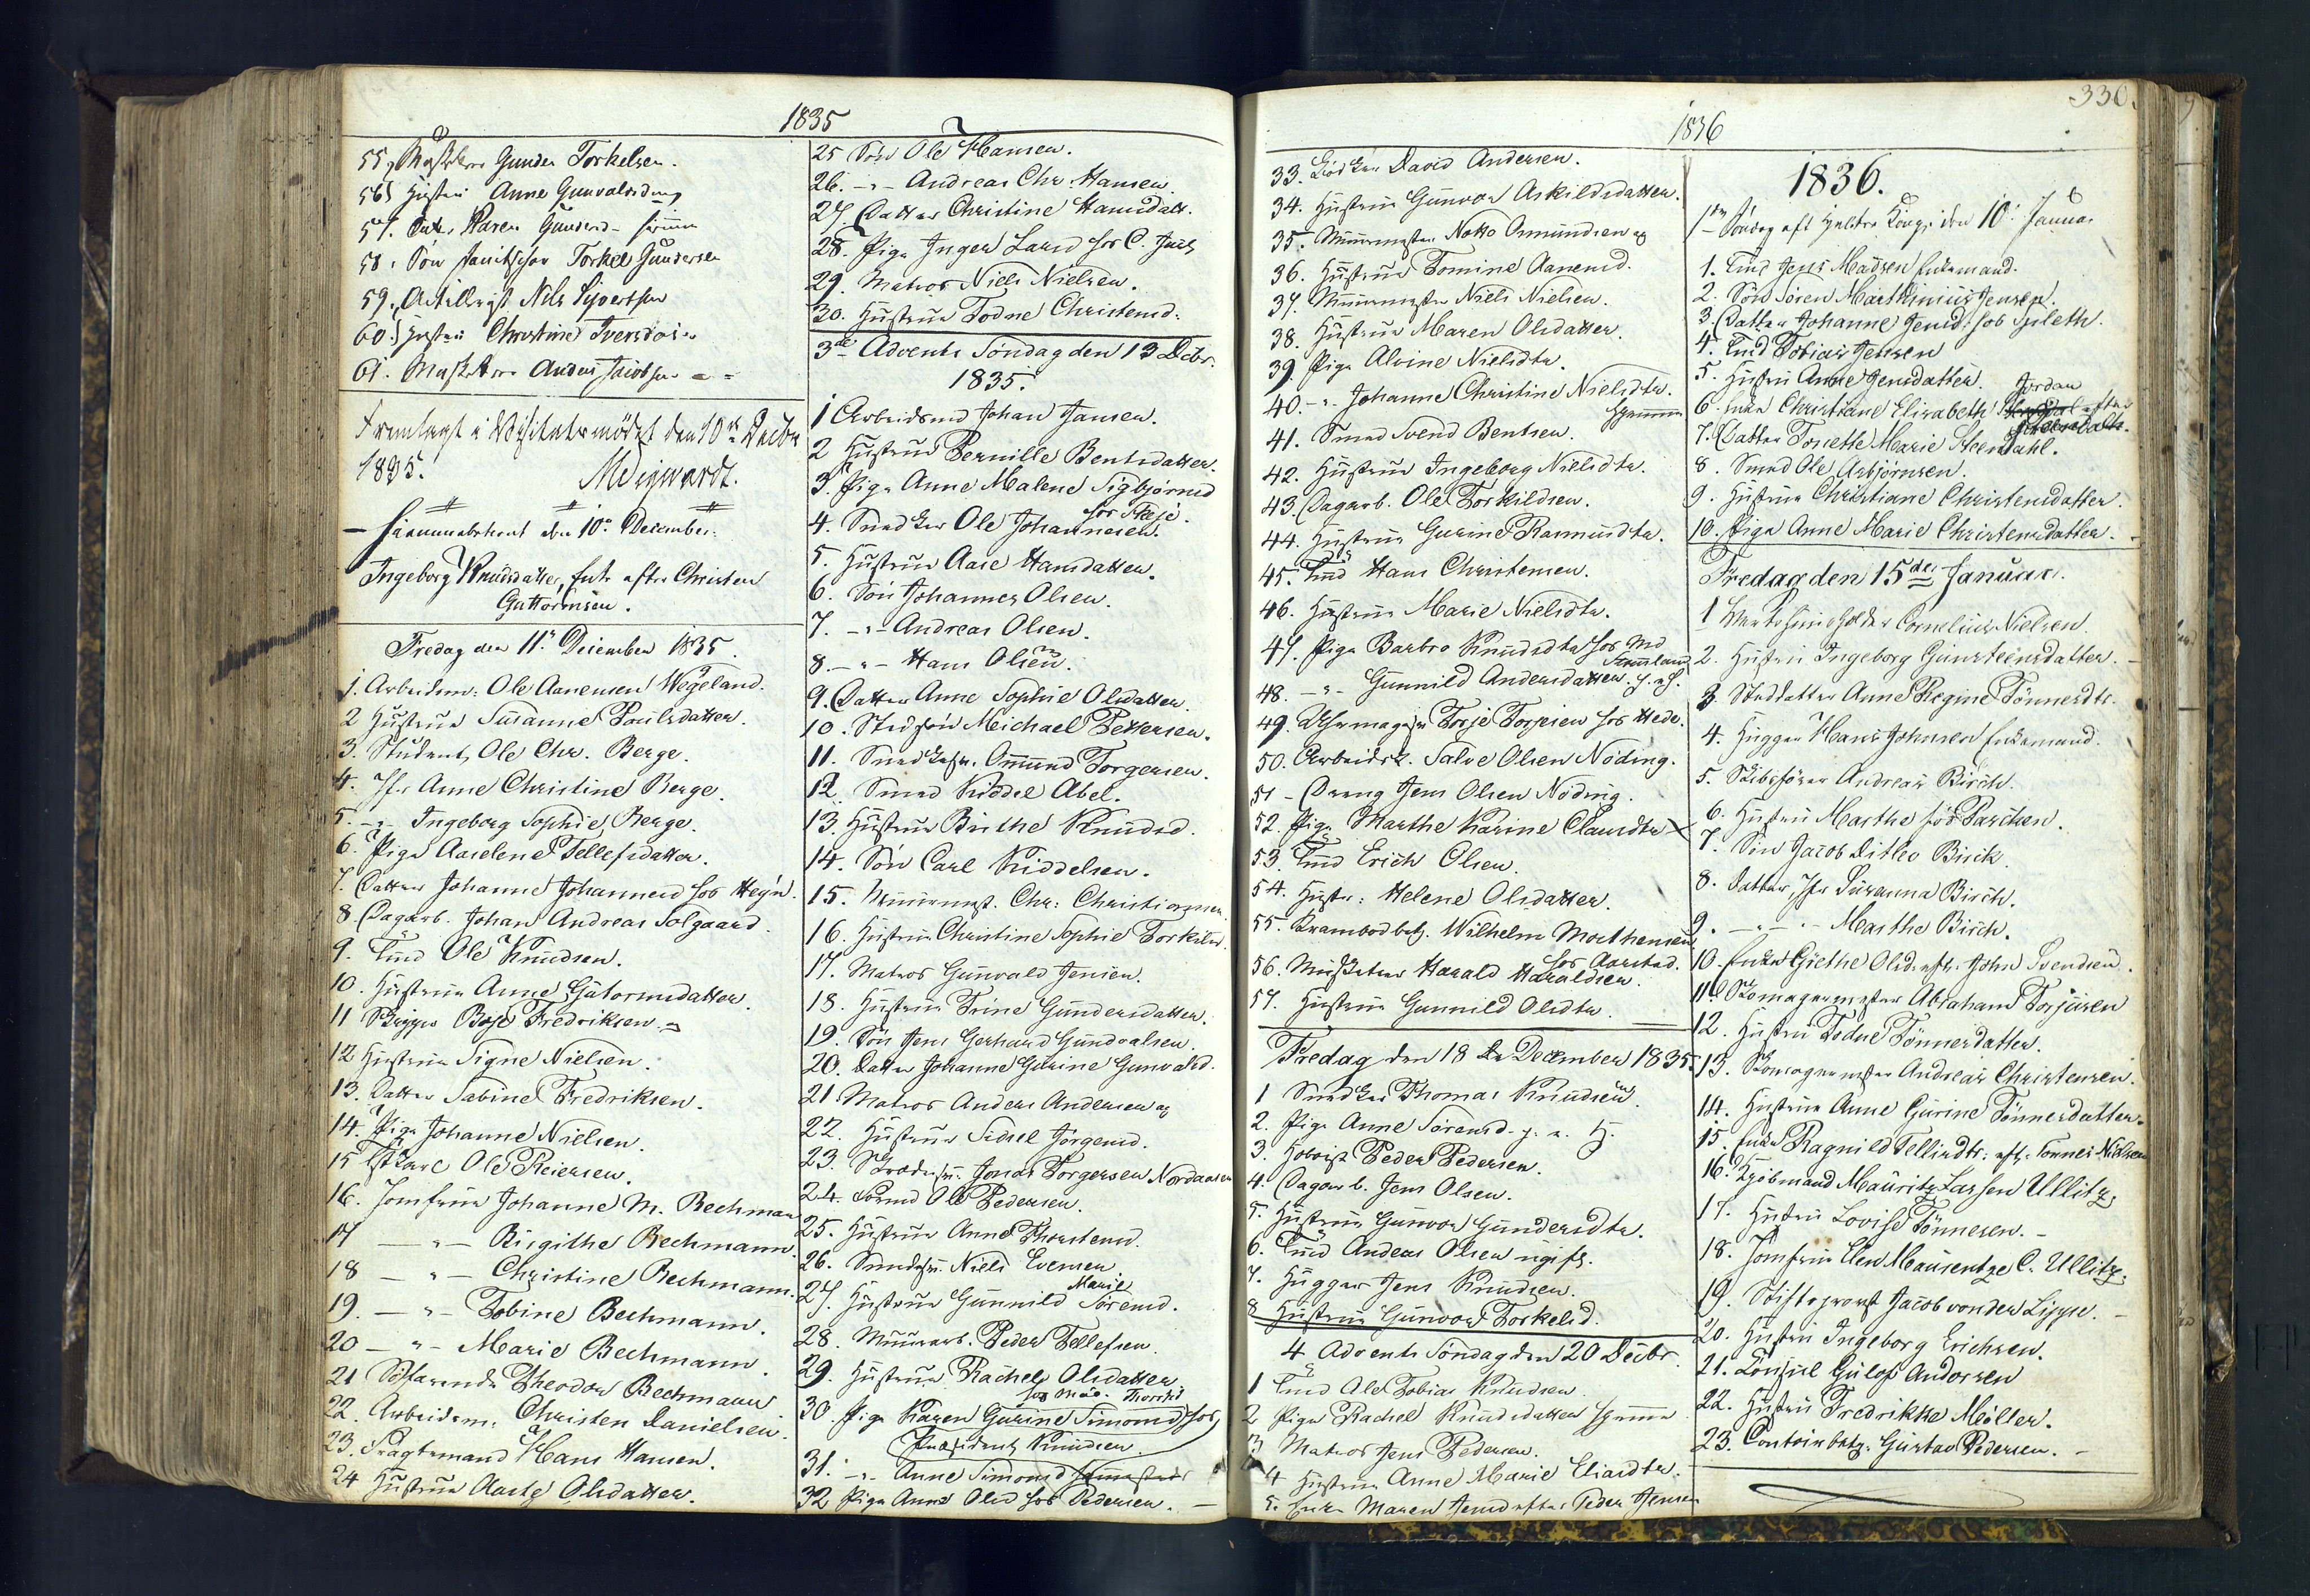 1835
55, Musketeer Gunder Torkelsen.
56, Hustru Anne Gunvalsd
57. Dat. Karen Gundersd
58. Søn Janitschar Torkel Gundersen
59, Artillerist Nels Sivertsen
60, Hustru Christine Iversdat.
61. Musketeer Anders Jacobsen
Fremlagt i Visitatsmødet den 10de Decbr
1835.
- Hjemmeberettet den 10de December.
Ingeborg Knudsdatter, Enke efter Christen
Guttormsen.
Fredag den 11te December 1835.
1. Arbeidsm: Ole Aanensen Wegeland.
2 Hustrue Susanne Poulsdatter.
3. Student Ole Chr. Berge.
4. Jfr Anne Christine Berge.
5. -"- Ingeborg Sophie Berge.
6. Pige Aaselene Tellefsdatter.
7. Datter Johanne Johannesd hos Wegn.
8. Dagarb. Johan Andreas Solgaard.
9. Tmd Ole Knudsen.
10. Hustrue Anne Gutormsdatter.
11 Brygger Boje Fredriksen
12 Hustrue Signe Nielsen.
13. Datter Sabine Fredriksen.
14. Pige Johanne Nielsen.
15 Ole Reiersen.
16. Jomfrue Johanne M. Bechman
17 -"- Birgithe Bechmann.
18 -"- Christine Bechmann.
19. -"- Tobine Bechmann.
20 -"- Marie Bechmann
21 Søfarende Theodor Bechmann
22. Arbeidsm. Christen Danielsen.
23. Fragtemand Hans Hansen.
24 Hustrue Aaste Olsdatter.
25 Søn Ole Hansen.
26. -"- Andreas Chr. Hansen
27. Datter Christine Hansdatt.
28. Pige Inger Larsd hos C.
29. Matros Niels Nielsen.
30. Hustrue Todne Christensd.
3de Advents Søndag den 13 Decbr.
1835.
1 Arbeidsmd Johan Jansen.
2 Hustrue Pernille Bentsdatter.
3. Pige Anne Malene Sigbjørnsd
4. Snedker Ole Johannesen.
5. Hustrue Aase Hansdatter.
6. Søn Johannes Olsen.
7. -"- Andreas Olsen.
8. -"- Hans Olsen.
9. Datter Anne Sophie Olsdatter.
10. Stedsøn Michael Pettersen.
11. Snedkersv. Ommund Torgersen.
12. Smed Kiddel Abel.
13. Hustrue Birthe Knudsd.
14. Søn Carl Kiddelsen.
15. Muurmest. Chr: Christiansen
16. Hustrue Christine Sophie Torkilsd.
17. Matros Gunvald Jensen.
18. Hustrue Trine Gundersdatter.
19. Søn Jens Gerhard Gundvalsen.
20. Datter Johanne Gurine Gunvalsd.
21. Matros Anders Andersen og
22. Hustrue Sidsel Jørgensd.
23. Skredersv. Jonas Torgersen Nordaasen
24. Ole Pedersen.
25. Hustrue Anne Thorstensd.
26. Smedesv. Niels Evensen
Marie
27. Hustrue Gunnild Sørensd.
28. Muurarb. Peder Tellefsen.
29. Hustrue Rachel Olsdatter
30. Pige Karen Gurine Simonsd hos
Præsident Knudsen.
31. -"- Anne Simonsd
32 Pige Anne Olsd hos Pedersen.
330.
1836
33. Bødker David Andersen.
34. Hustrue Gunvor Askildsdatter.
35. Muurmester Notto Osmundsen og
36. Hustrue Tomine Aanensd.
37. Muurmester Niels Nielsen.
38. Hustrue Maren Olsdatter.
39. Pige Alvine Nielsdtr.
40. -"- Johanne Christine Nielsdtr. hjemme
41. Smed Svend Bentsen.
42. Hustrue Ingeborg Nielsdtr.
43. Dagarb. Ole Torkildsen.
44. Hustrue Gurine Rasmusdtr.
45. Tmd Hans Christensen.
46. Hustrue Marie Nielsdtr.
47. Pige Barbro Knudsdtr hos Md
48. -"- Gunnild Andersdatter.
49. Uhrmager Torje Torjesen hos Hede.
50. Arbeidsk. Salve Olsen Nøding.
51 - Dreng Jens Olsen Nøding.
52. Pige Marthe Karine Clausdtr
53. Tmd Erich Olsen.
54. Hustr: Helene Olsdatter.
55. Krambodbetj. Wilhelm Mathensen
hos Aarstad.
56. Musketeer Harald Haraldsen.
57. Hustrue Gunnild Olsdtr.
Fredag den 18de December 1835.
1 Snedker Thomas Knudsen.
2. Pige Anne Sørensd.
3. Hoboist Peder Pedersen.
4. Dagarb. Jens Olsen.
5. Hustrue Gunvor Gundersdtr.
6. Tmd Anders Olsen ugift.
7. Hugger Jens Knudsen.
8 Hustrue Gunvor Torkelsd.
4 Advents Søndag den 20 Decbr.
1 Tmd Ole Tobias Knudsen.
2 Pige Rachel Knudsdatter hjemme
3 Matros Jens Pedersen.
4 Hustrue Anne Marie Eliasdtr.
5. Enke Maren Jensd efter Peder Jensen
1836.
1te Søndag eft Hellitre Konge den 10de Januar
1. Tmd Jens Madsen Enkemand.
2. Søn Søren Marthinius Jensen.
3. Datter Johanne Jensd: hos Spileth.
4. Tmd Tobias Jensen
5. Hustru Anne Jensdatter.
Jordan
6. Enke Christiane Elisabeth efter
7. Datter Torjethe Marie Steendahl.
8. Smed Ole Asbjørnsen.
9. Hustrue Christiane Christensdatter.
10. Pige Anne Marie Christensdatter.
Fredag den 15de Januar.
1 Vertshuusholder Cornelius Nielsen
2. Hustru Ingeborg Gunsteensdatter.
3. Steddatter Anne Regine Tønnesdtr.
4. Hugger Hans Johnsen Enkemand.
5. Skibsfører Andreas Birch.
6. Hustru Marthe fød Paschen.
7. Søn Jacob Ditlev Birck.
8. Datter, Jfr Susanna Birch.
9. -"- -"- Marthe Birch.
10. Enke Grethe Olsd. eft. John Svendsen.
11. Skomagermester Abraham Torjusen
12. Hustru Todne Tønnesdatter.
13. Skomagermester Andreas Christensen.
14. Hustrue Anne Gurine Tønnesdatter.
15. Enke Ragnild Tellisdtr. eft. Tønnes Nielsen
16. Kjøbmand Mauritz Larsen Ullitz
17. Hustru Lovise Tønnesen.
18. Jomfrue Elen Mausentze C. Ullitz.
19. Stiftsprovst Jacob von der Lippe.
20. Hustru Ingeborg Erichsen.
21. Consul Gulof Andorsen
22. Hustru Fredrikke Møller.
23. Contoirbetj. Gustav Pedersen.